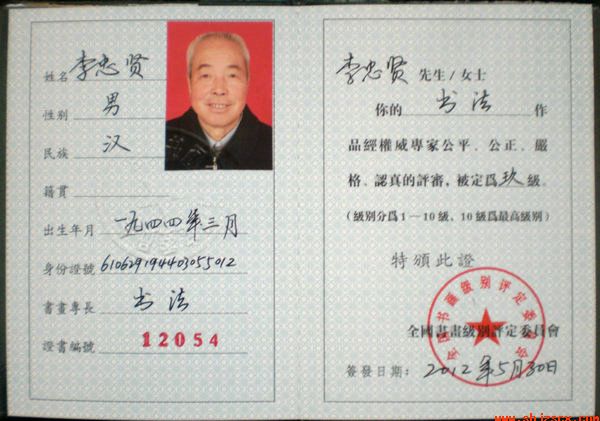 姓名 李忠贤
性别 男
民族 汉
籍貫
出生年月 一九四四年三月
身份證號 610629194403055012
書畫專長 书法
證書編號 12054
李忠贤 先生/女士
你的 书法 作
品經權威專家公平、公正、嚴
格、認真的評審，被定爲 玖 級。
(級別分爲1—10級、10級爲最高級別)
特頒此證
全國書畫級別評定委員會
簽發日期：2012年5月30日